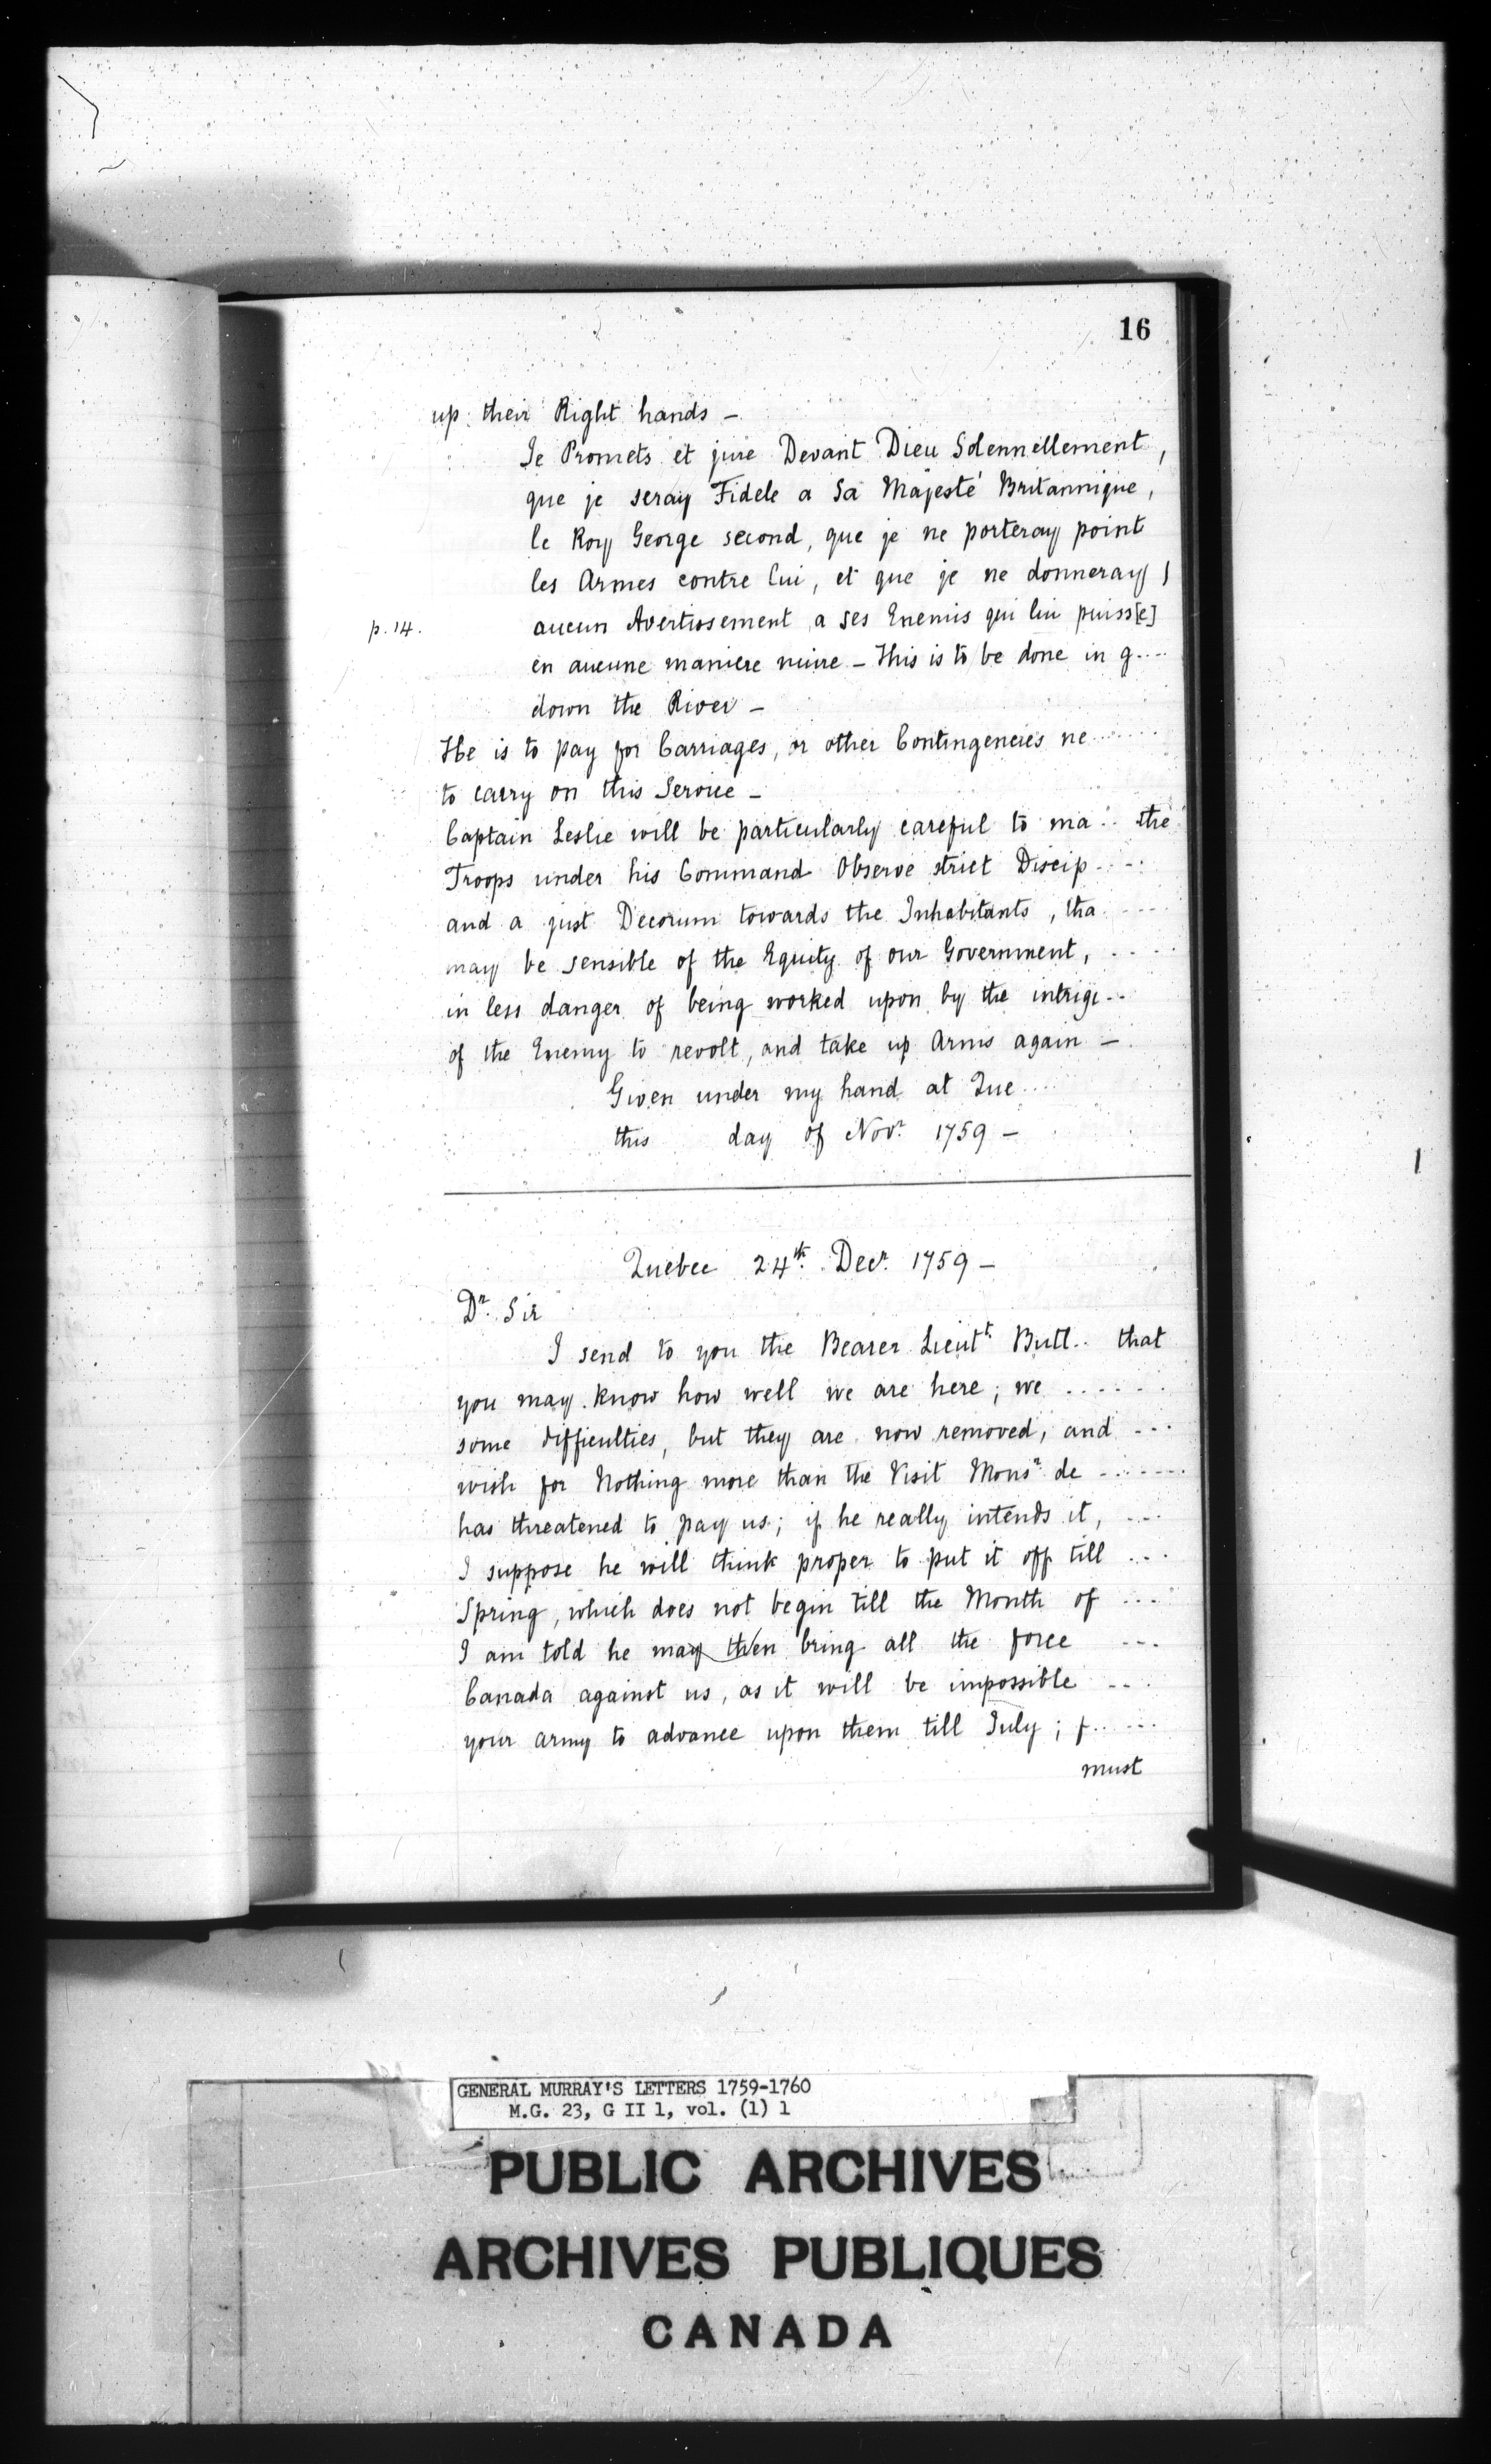 16
up their Right hands –
Je Promets et jure Devant Dieu Solennellement,
que je seray Fidele a Sa Majesté Britannique,
le Roy George second, que je ne porteray point
les Armes contre lui, et que je ne donneray
p. 14. aucun Avertissement a ses Enemis qui lui puiss[e]
en aucune maniere nuire – This is to be done in g....
down the River –
He is to pay for Carriages, or other Contingencies ne.......
to carry on this Service –
Captain Leslie will be particularly careful to ma.. the
Troops under his Command Observe strict Discip....
and a just Decorum towards the Inhabitants, tha....
may be sensible of the Equity of our Government, ....
in less danger of being worked upon by the intrigu..
of the Enemy to revolt, and take up Arms again –
Given under my hand at Que....
this day of Novr. 1759 –
Quebec 24th. Decr. 1759 –
Dr. Sir
I send to you the Bearer Lieutt. Butl.. that
you may know how well we are here; we ......
some difficulties, but they are now removed, and ...
wish for Nothing more than the Visit Monsr de .......
has threatened to pay us; if he really intends it, ...
I suppose he will think proper to put it off till ...
Spring, which does not begin till the Month of ...
I am told he may then bring all the force ...
Canada against us, as it will be impossible ...
your army to advance upon them till July; f.. ...
must
GENERAL MURRAY'S LETTERS 1759-1760
M.G. 23, G II 1, vol. (1) 1
PUBLIC ARCHIVES
ARCHIVES PUBLIQUES
CANADA